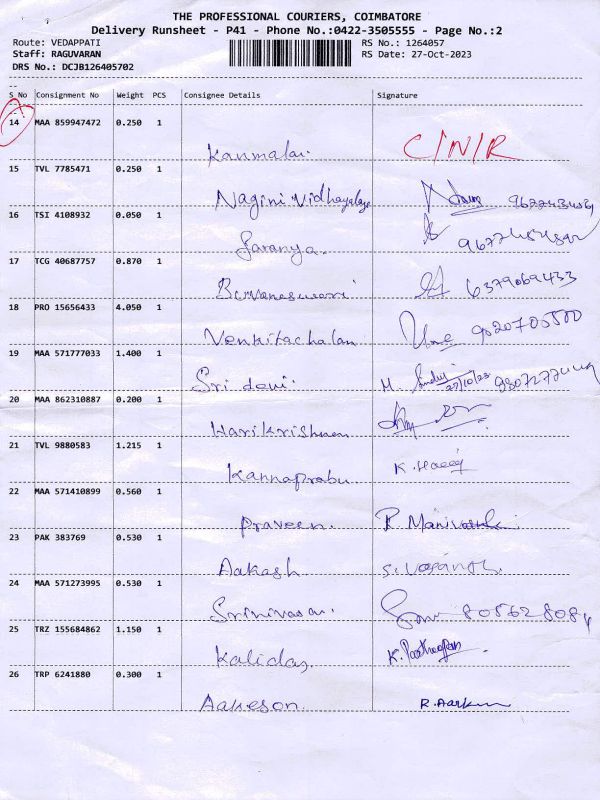 THE PROFESSIONAL COURIERS, COIMBATORE
Delivery Runsheet - P41 - Phone No.:0422-3505555 - Page No.:2
Route: VEDAPPATI
RS No.: 1264057
Staff: RAGUVARAN
RS Date: 27-Oct-2023
DRS No.: DCJB126405702
S_No Consignment No Weight PCS Consignee Details Signature
14 MAA 859947472 0.250 1
Kanmalai. C/N/R
15 TVL 7785471 0.250 1
Nagini Vidhayalaya
16 TSI 4108932 0.050 1
Saranya.
17 TCG 40687757 0.870 1
Buvaneswari 6379069433
18 PRO 15656433 4.050 1
Venkitachalam
19 MAA 571777033 1.400 1
Sri devi. 27/10/23
20 MAA 862310887 0.200 1
Harikrishnan
21 TVL 9880583 1.215 1
Kannaprabu
22 MAA 571410899 0.560 1
Praveen.
23 PAK 383769 0.530 1
Aakash
24 MAA 571273995 0.530 1
Srinivasan.
25 TRZ 155684862 1.150 1
Kalidas.
26 TRP 6241880 0.300 1
Aakeson